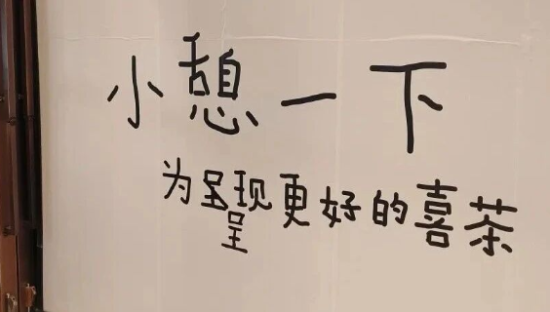 小憩一下
为呈现更好的喜茶
呈